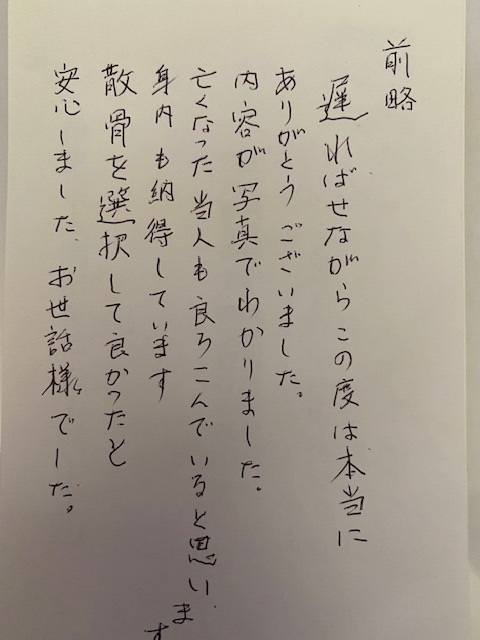 前略
遅ればせながらこの度は本当に
ありがとうございました。
内容が写真でわかりました。
亡くなった当人も良ろこんでいると思います
身内も納得しています
散骨を選択して良かったと
安心しました、お世話様でした。